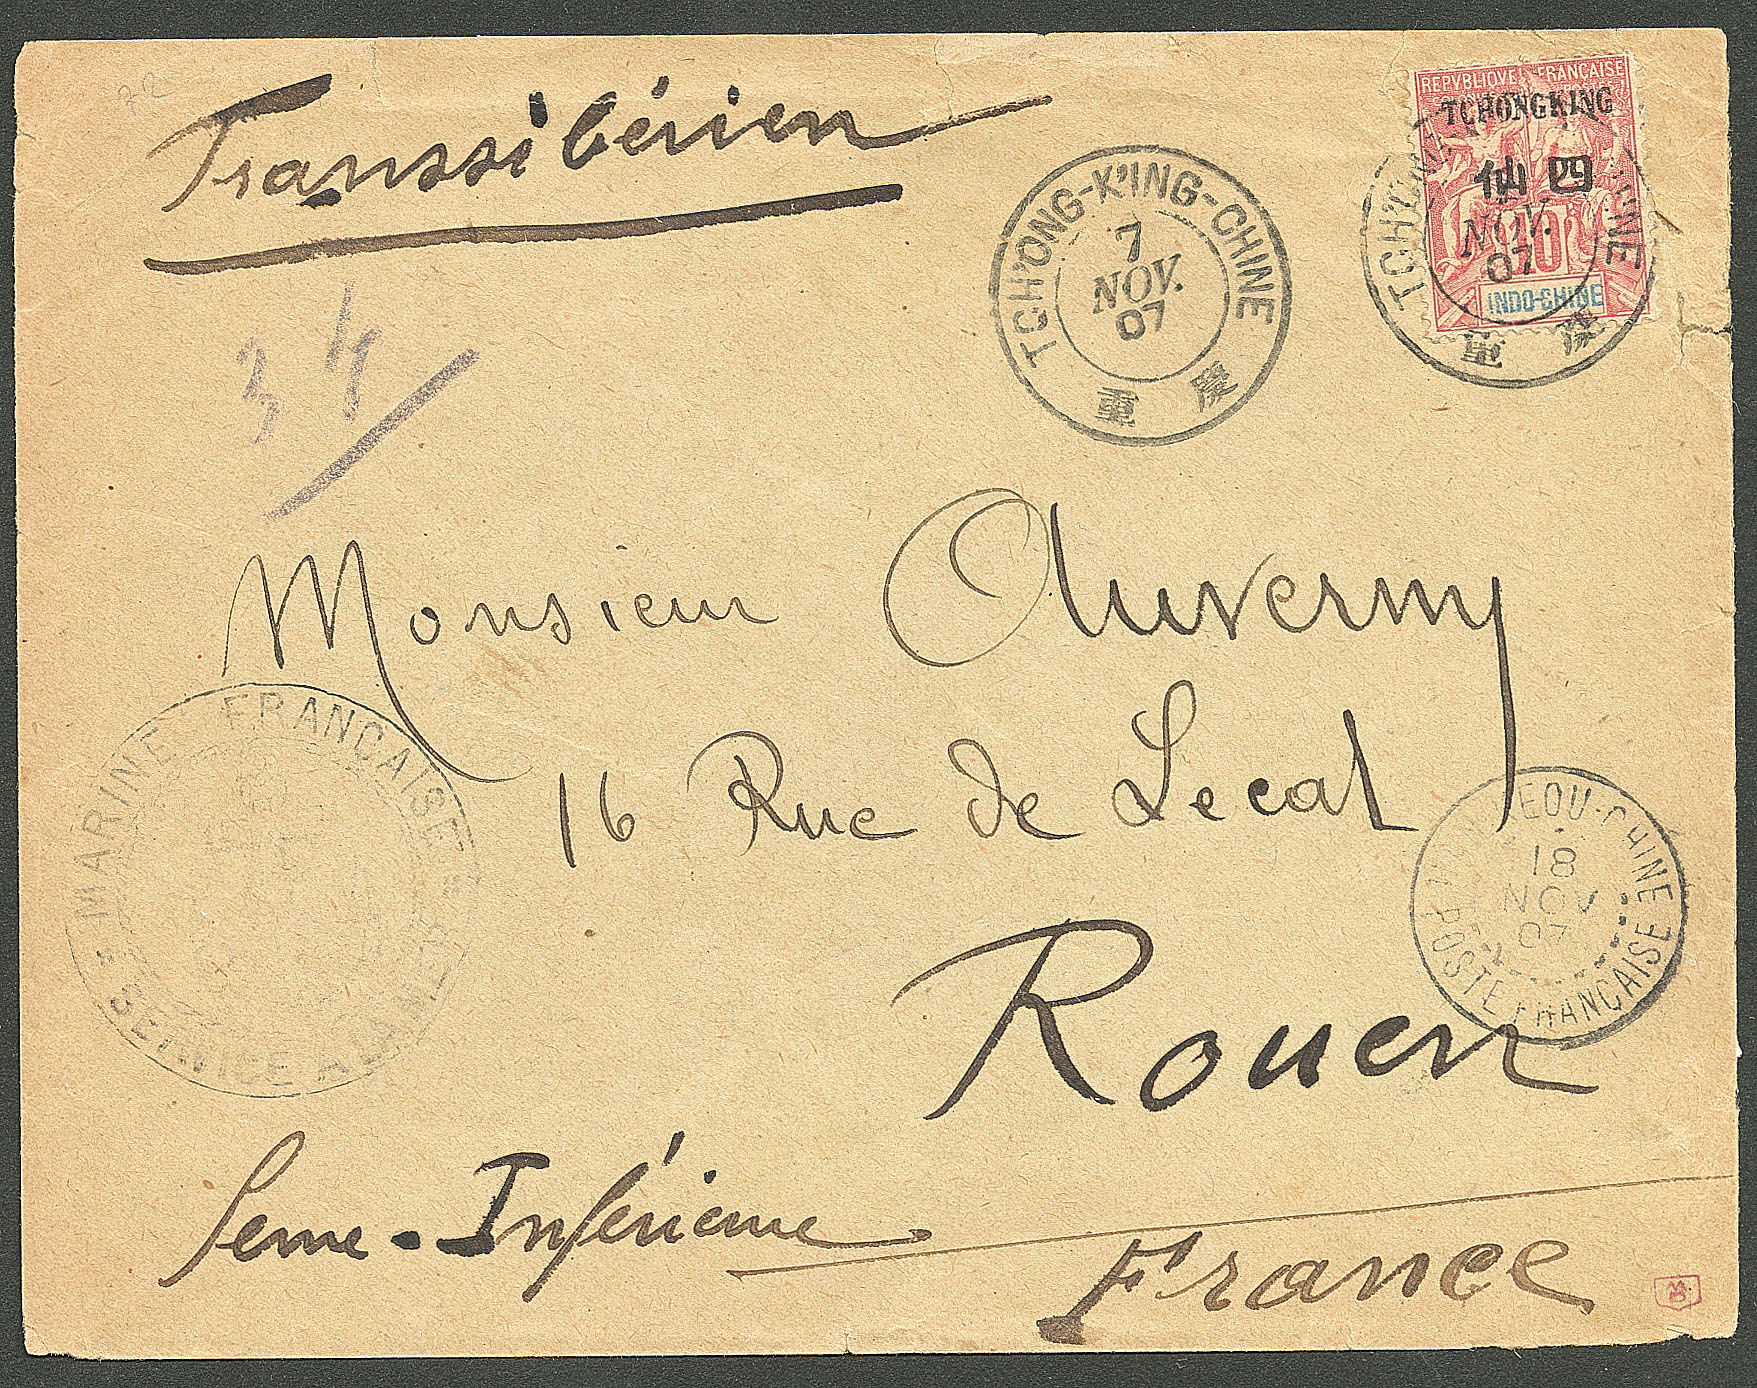 Transsibérien
REPVBLIQVE FRANÇAISE
TCHONGKING
仙 四
10
INDO-CHINE
TCH'ONG-K'ING-CHINE
7
NOV.
07
重 慶
TCH'ONG CHINE
NOV.
07
重 慶
34
Monsieur Auvermy
16 Rue de Lecat
Rouen
Seine-Inférieure
France
MARINE FRANÇAISE
SERVICE A LA MER
KEOU-CHINE
18
NOV
07
POSTE FRANÇAISE